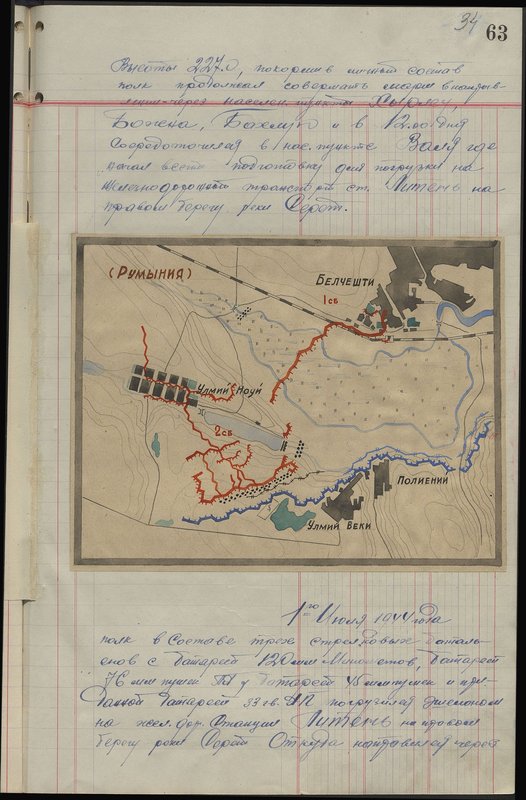 34
63
Высоты 227.0, накормив личный состав
полк продолжал совершать марш
через населен. пункты
Божена, и в 12.00 дня
сосредоточился в нас. пункте Валя где
начал вести подготовку для погрузки на
железнодорожный транспорт ст. Литень на
правом берегу реки Серет.
(РУМЫНИЯ)
БЕЛЧЕШТИ
1 СБ
УЛМИЙ НОУЙ
2 СБ
ПОЛИЕНИИ
УЛМИЙ ВЕКИ
1го Июля 1944 года
полк в составе трех стрелковых баталь-
енов с батареей 120 мм Минометов, батареей
76 мм пушек батареей 45 мм пушек и при-
данной батареей 33 гв. АП погрузился эшелоном
на жел. дор. станции Литень на правом
берегу реки Серет Откуда направился через